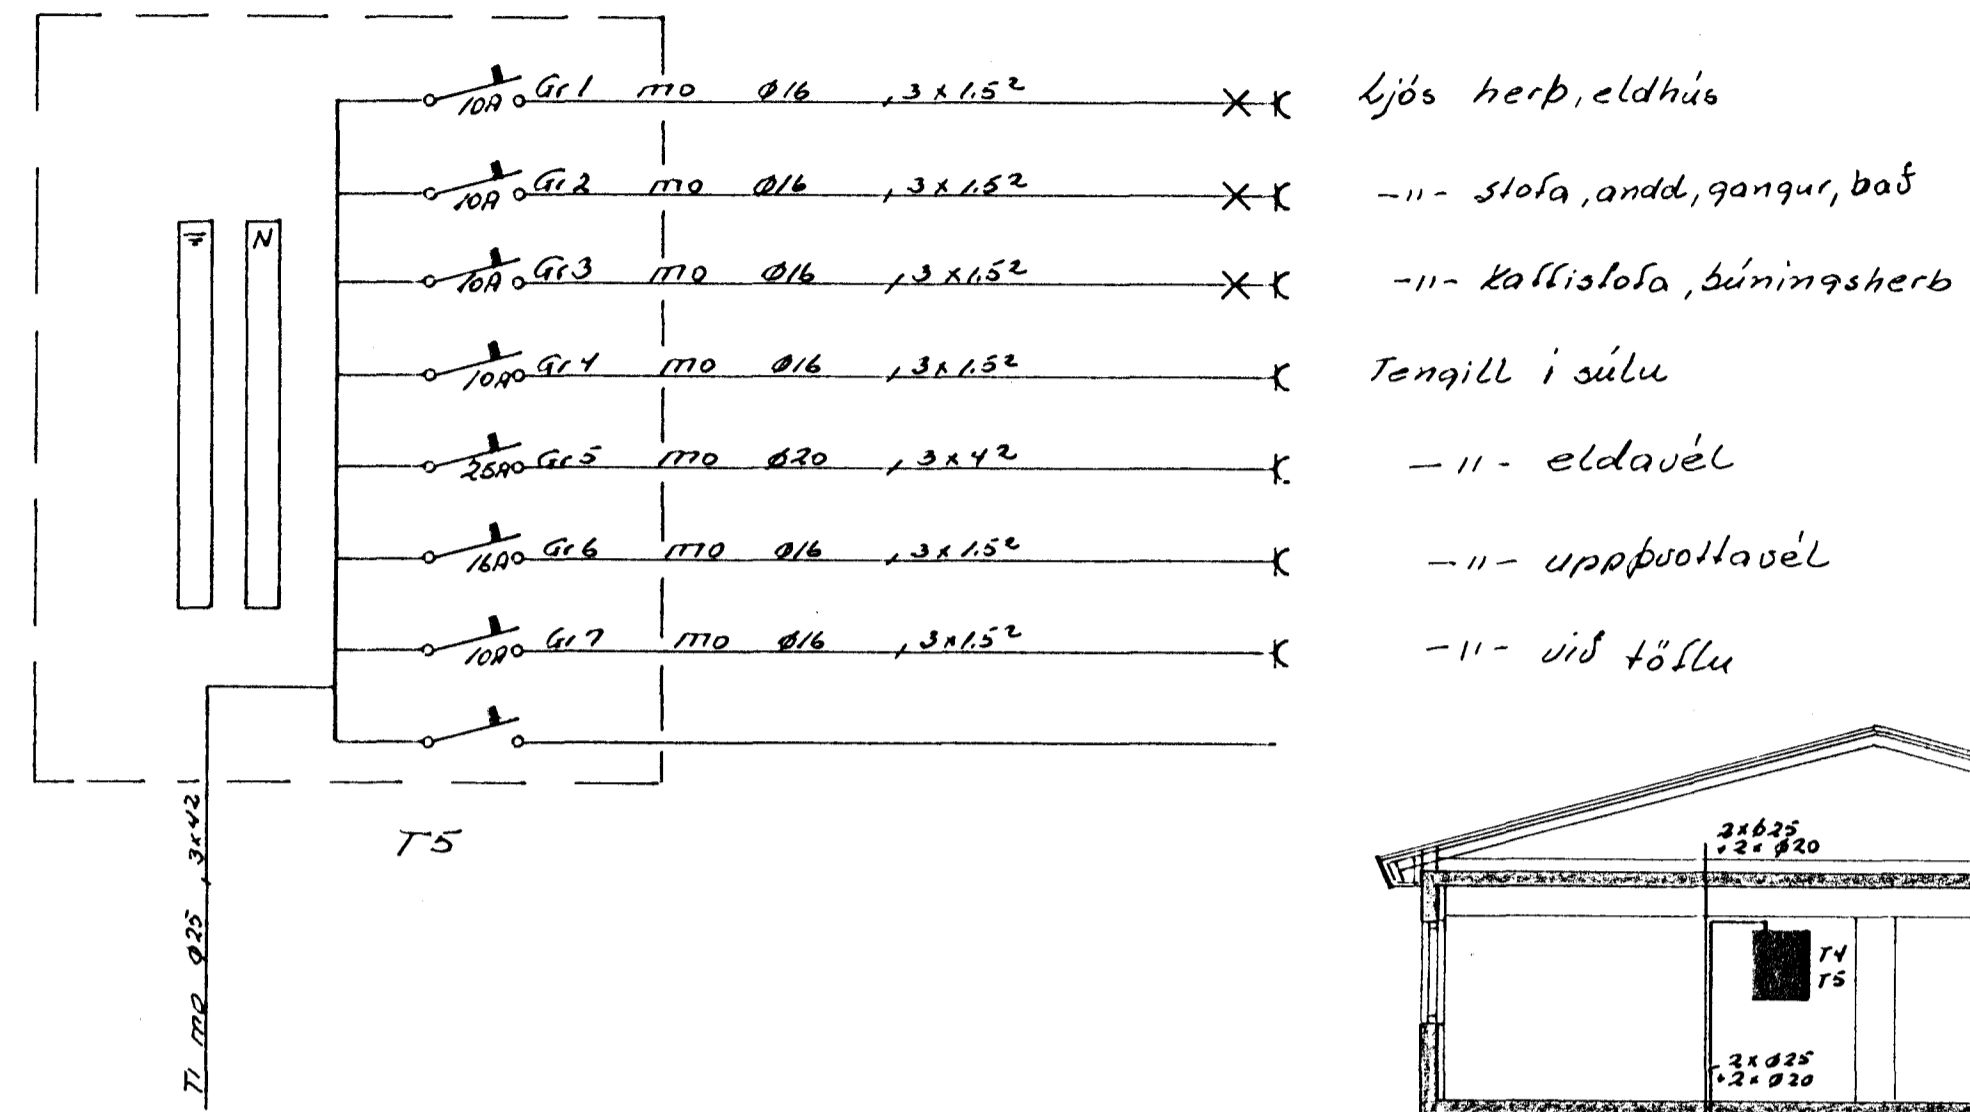 10A Gr1 mo Ø16 , 3x1.5² Ljós herb, eldhús
10A Gr2 mo Ø16 , 3x1.5² -"- stofa, andd, gangur, bað
N
10A Gr3 mo Ø16 , 3x1.5² -"- Kaffistofa, búningsherb
10A Gr4 mo Ø16 , 3x1.5² Tengill í súlu
25A Gr5 mo Ø20 , 3x4² -"- eldavél
16A Gr6 mo Ø16 , 3x1.5² -"- uppþvottavél
10A Gr7 mo Ø16 , 3x1.5² -"- við töflu
T1 mo Ø25 , 3x4²
T5
2xØ25
+2xØ20
T4
T5
2xØ25
+2xØ20